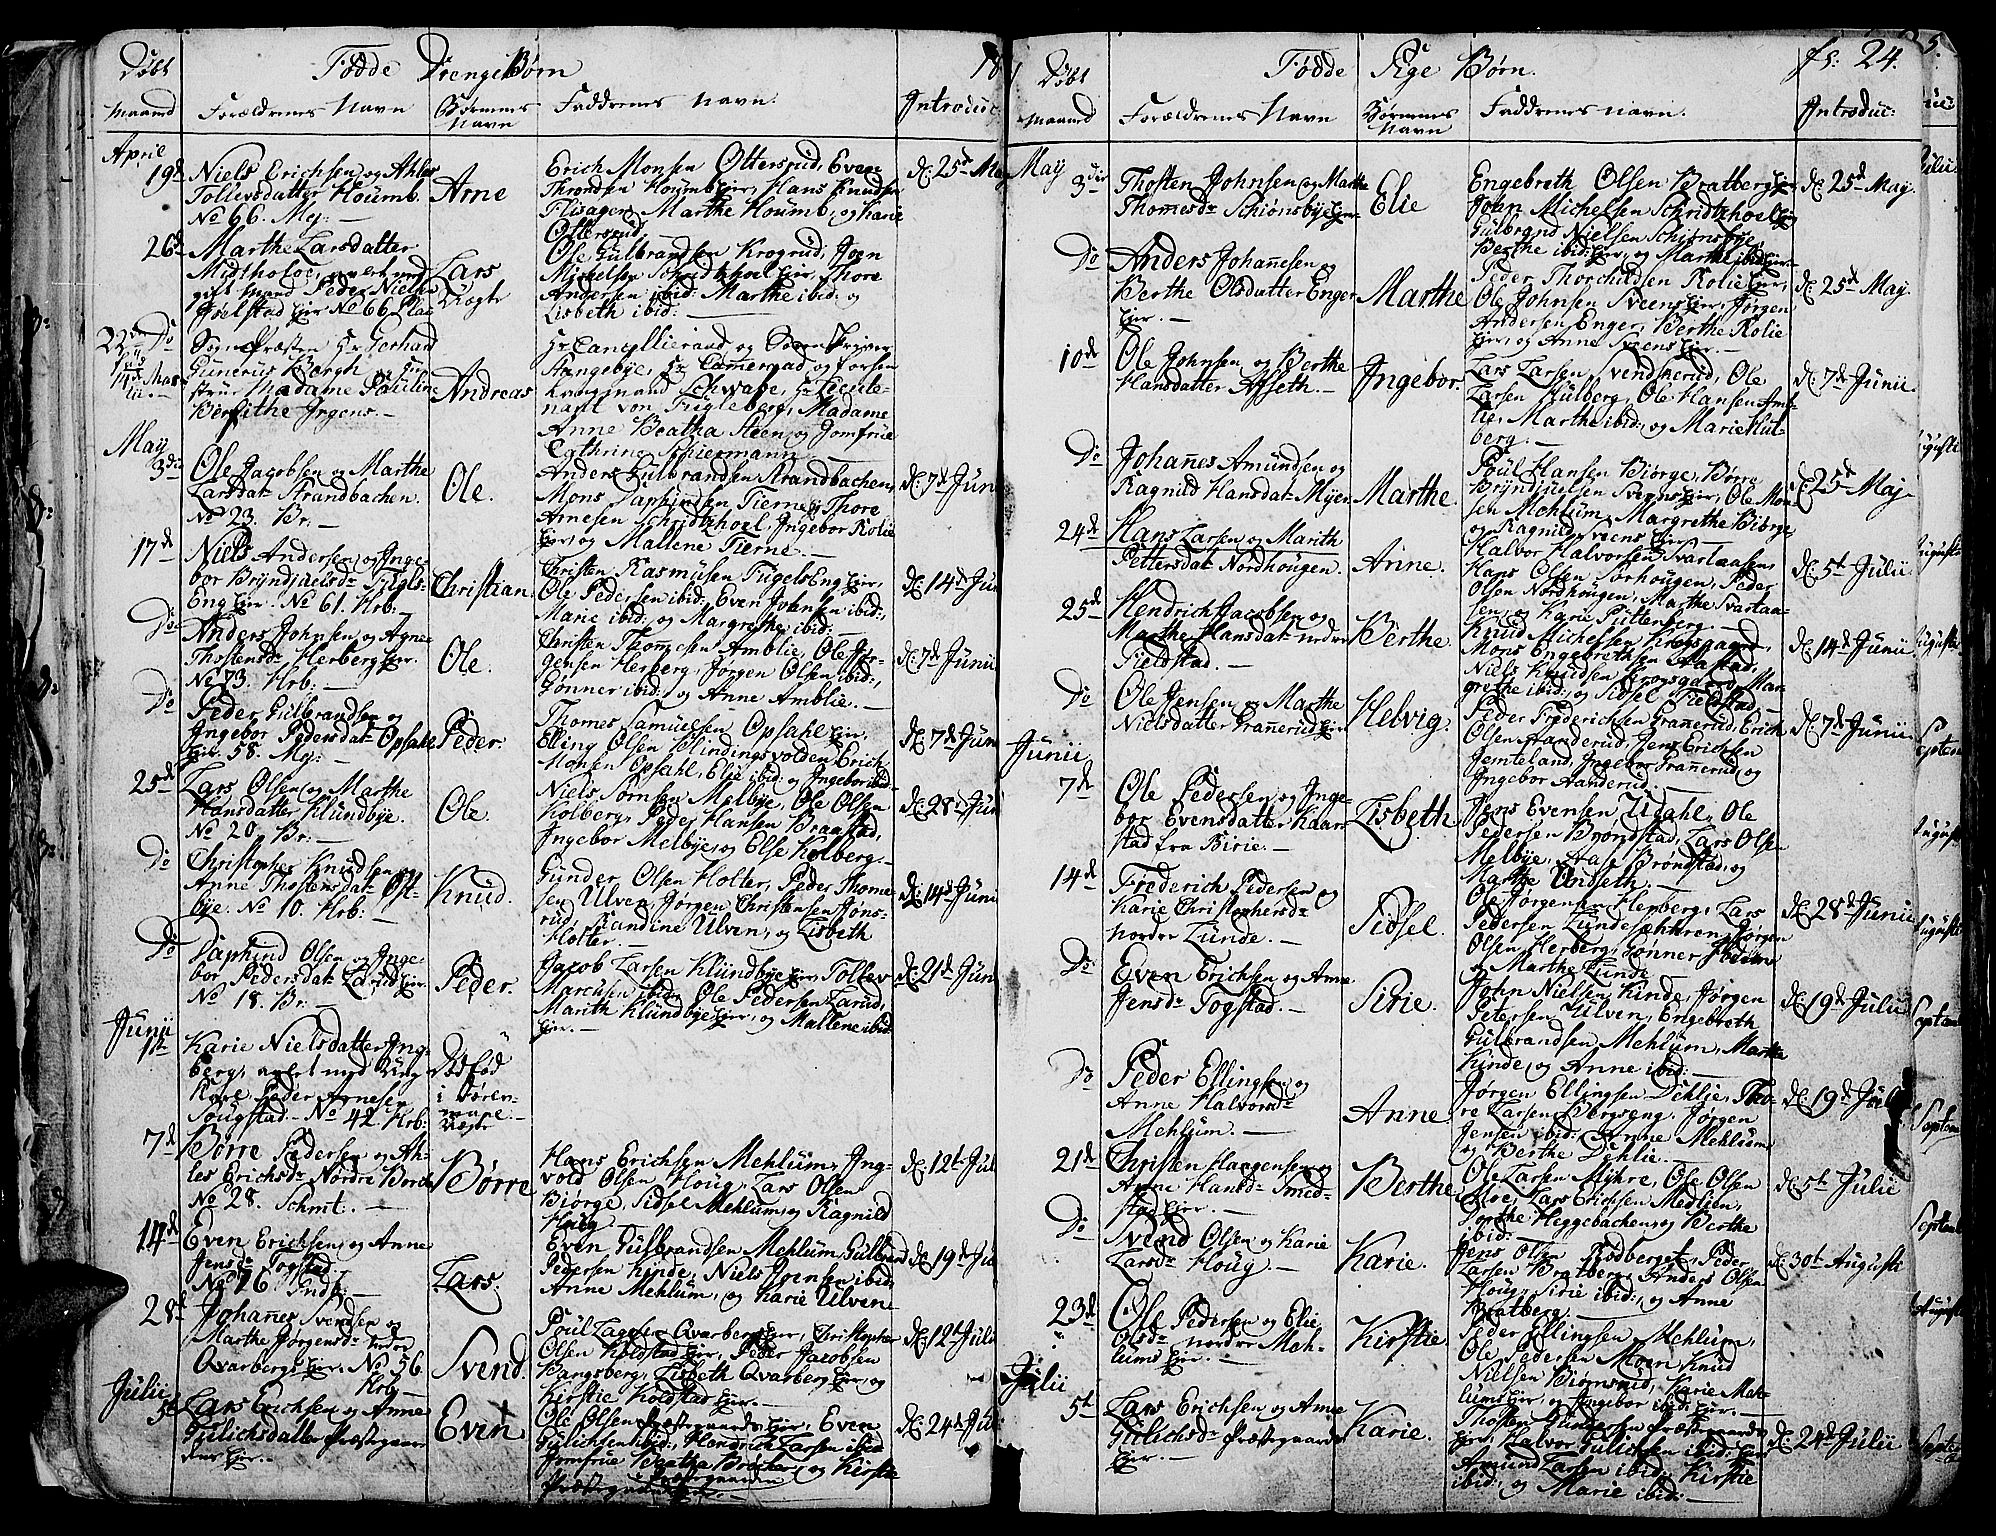 Døbt
Maaned
Fødde DrengeBørn
18
Forældrenes Navn
Børnenes
Navn
Faddrenes Navn.
Introduc:
April
19d
Niels Erichsen og Ahles
Tollevsdatter Houmb
No 66. Mej:
Arne
Erich Monsen Ottersrud, Even
Thronsen Houmb Eier, Hans Knudsen
Flisager, Marthe Houmb, og Karie
Ottersrud.
d: 25d May
26d
Marthe Larsdatter
Midtholoe,
gift Mand Peder Nielsen
Joelstad Eier No 66. Mej
Lars
Uægte
Ole Gulbrandsen Krogrud, Joen
Michelsen Schridtshoel Eier, Thore
Andersen ibid: Marthe ibid: og
Lisbeth ibid: —
Do
Sogne Præsten Hr Gerhard
Gunerius Bergh og Hu-
strue Madame Pauline
Bersithe Irgens. —
Andreas
Hr Cancellieraad og Sorenskriver
Stangebye, Hr Camerraad og forsen
Laugmand Schwabe, Hr Lieute-
nant von Fugleberg, Madame
Anne Beatha Steen, og Jomfrue
Cathrine Schiermann —
May
3die
Ole Jacobsen og Marthe
Larsdat: Strandbachen.
No 23. Br: —
Ole.
Anders Gulbrandsen Strandbachen,
Mons Daphinsen Tierne, Thore
Arnesen Schridtshoel, Ingebor Rolie
Eier, og Mallene Tierne. —
d: 7d Juni
17d
Niels Andersen og Inge-
bor Bryndjuelsd: Fugls-
Eng Eier. No 61. Hrb: —
Christian.
Christen Rasmusen FugelsEng Eier,
Ole Pedersen ibid: Even Johnsen ibid:,
Marie ibid: og Margrethe ibid:
d: 14d Juni
Do
Anders Johnsen og Agne
Thostensd: Herberg Eier.
No 73. Hrb: —
Ole.
Christen Thomesen Amblie, Ole Jør-
gensen Herberg, Jørgen Olsen ibid:,
Gønner ibid: og Anne Amblie. —
d: 7d Junii
Do
Peder Gulbrandsen og
Ingebor Pedersdat: Opsahl
Eier. 58. Mej: —
Peder.
Thomes Samuelsen Opsahl Eier,
Elling Olsen Blindingsvolden, Erich
Monsen Opsahl, Elie ibid: og Ingebor ibid:
d: 7d Juni
25d
Lars Olsen og Marthe
Hansdatter Klundbye.
No 20. Br: —
Ole.
Niels Tomsen Melbye, Ole Olsen
Kolberg, Peder Hansen Braastad,
Ingebor Melbye, og Else Kolberg. —
d: 28d Juni
Do
Christopher Knudsen og
Anne Thostensdat: Øst-
bye. No 10. Hrb: —
Knud.
Gunder Olsen Holter, Peder Thome-
sen Ulven, Jørgen Christensen Jøns-
rud, Randine Ulven, og Lisbeth
Holter. —
d: 14d Juni
Do
Daphind Olsen og Inge-
bor Pedersdat: Larud Eier.
No 18. Br: —
Peder.
Jacob Larsen Klundbye Eier, Tollev
Marchsen ibid: Ole Pedersen Larud,
Marith Klundbye Eier, og Mallene ibid:
Eier. —
d: 21d Juni
Junii
1ste
Karie Nielsdatter Ing-
berg, avlet med Ung
Karl Peder Arnesen
Sougstad — No 42. Hrb:
Dødfød
i Løren-
Uægte
7d
Børre Pedersen og Ah-
les Erichsd: Nordre Berch
No 28. Schmt: —
Børre
Hans Erichsen Mehlum, Ing-
vold Olsen Houg, Lars Olsen
Biørge, Sidsel Mehlum, og Ragnild
Houg. —
d: 12t Juli
14d
Even Erichsen og Anne
Jensd: Togstad.
No 76. Indb: —
Lars.
Even Gulbrandsen Mehlum, Gulbrand
Pedersen Kinde, Niels Joensen ibid:
Anne Mehlum, og Karie Ulven
d: 19d Juli
28d
Johanes Svendsen og
Marthe Jørgensd: nedre
Qvarbergs Eier. No 56.
Hrb —
Svend.
Poul Larsen Qvarberg Eier, Christopher
Olsen Kolstad Eier, Peder Jacobsen
Bangsberg, Lisbeth Qvarberg Eier, og
Kirstie Kolstad Eier. —
d: 12t Juli
Julii
5te
Lars Erichsen og Anne
Gulichsdatter Præstegaar-
dens Eier. —
Even
Ole Olsen Præstegaards Eier, Even
Gulichsen ibid:, Hendrich Larsen ibid:
Jomfrue Beatha og Kirstie
Præstegaarden. —
d: 24d Juli
Døbt
Maaned
Fødde Pige Børn.
fl: 24.
Forældrenes Navn
Børnenes
Navn
Faddrenes Navn.
Introduc:
May
3die
Thosten Johnsen og Marthe
Thomesd: Schiønsbye Eier.
Elie
Engebreth Olsen Bratberg Eier
Joen Michelsen Schridtshoel, og
Gulbrand Nielsen Schiønsbye
Berthe ibid: Eier, og Marthe ibid: Eier —
d: 25d May.
Do
Anders Johanesen og
Berthe Olsdatter Enger
Eier. —
Marthe
Peder Thorchildsen Rolie Eier,
Ole Johnsen Sveens Eier, Jørgen
Andersen Enger, Berthe Rolie
Eier, og Anne Sveens Eier. —
d: 25d May.
10de
Ole Johnsen og Berthe
Hansdatter Afseth. —
Ingebor.
Lars Larsen Svendserud, Ole
Larsen Hulberg, Ole Hansen Amb-
lie, Marthe ibid: og Marie Hul-
berg. —
d: 7d Junii
Do
Johanes Amundsen og
Ragnild Hansdat: Myer
Marthe.
Poul Hansen Biørge, Børre
Bryndjuelsen Sveens Eier, Ole Mon-
sen Mehlum, Margrethe Biørge
og Ragnild Sveens Eier —
d: 25d Maj.
24d
Hans Larsen og Marith
Pettersdat: Nordhougen.
Anne.
Halvor Halvorsen Svartaasen,
Hans Olsen Sorhougen, Peder
Olsen Nordhougen, Marthe Svartaa-
sen, og Karie Puttenberg. —
d: 5t Julii
25d
Hendrich Jacobsen og
Marthe Hansdat: nedre
Fieldstad. —
Berthe.
Knud Michelsen Krogsgaard,
Mons Engebrethsen Aastad,
Niels Knudsen Krogsgaard, Mar-
grethe ibid:, og Sidsel Fieldstad. —
d: 14d Junii
Do
Ole Jensen og Marthe
Nielsdatter Granerud Eier.
Helvig.
Peder Friderichsen Granerud, Erich
Olsen Aanderud, Jens Erichsen
Jemteland, Ingebor Granerud, og
Ingebor Aanderud. —
d: 7d Junii
Junii
7d
Ole Pedersen og Inge-
bor Evensdatter Kaar-
stad fra Birie. —
Lisbeth
Jens Evensen Udahl, Ole
Pedersen Brøndstad, Lars Olsen
Melbye, Aase Brønstad, og
Marthe Undseth. —
14d
Frederich Pedersen og
Karie Christophersd:
nordre Lunde. —
Sidsel
Ole Jørgensen Herberg, Lars
Pedersen Lundesæthren, Jørgen
Olsen Herberg, Gønner ibidem
og Marthe Lunde —
d: 28d Junii
Do
Even Erichsen og Anne
Jensd: Togstad. —
Sirie.
John Nielsen Kinde, Jørgen
Petersen Ulven, Engebreth
Gulbrandsen Mehlum, Marthe
Kinde, og Anne ibid: —
d: 19d Julii
Do
Peder Ellingsen og
Anne Halvorsd:
Mehlum. —
Anne
Jørgen Ellingsen Dehlie, Tho-
re Larsen Bergseng, Jørgen
Jensen ibid: Anne Mehlum
og Berthe Dehlie. —
d: 19d Juli
21d
Christen Haagensen og
Anne Hansd: Smed-
stad Eier. —
Berthe
Ole Larsen Myhre, Ole Olsen
Moe, Lars Erichsen Medlien,
Dorthe Heggebachen, og Berthe
ibid: —
d: 5t Julii
Do
Svend Olsen og Karie
Larsd: Houg. —
Karie.
Jens Olsen Rudberget, Peder
Larsen Bratberg, Anders Olsen
Houg, Sirie ibid:, og Anne
Bratberg. —
d: 30t Augusti
23d
Ole Pedersen og Elie
Olsd: nordre Meh-
lums Eier. —
Kirstie.
Peder Ellingsen Mehlum,
Ole Pedersen Moen, Knud
Nielsen Biørnsrud, Karie Meh-
lums Eier, og Ingebor ibid: Eier. —
Julii
5t
Lars Erichsen og Anne
Gulichsd: Præstegaards
Eier. —
Karie.
Thosten Gundersen Præstegaards
Eier, Halvor Gulichsen ibid: Eier
Amund Larsen ibid: Kirstie
ibid: og Marie ibid: —
d: 24d Julii
5.